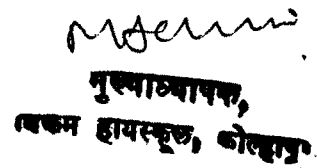 मुख्याध्यापक,
विक्रम हायस्कूल, कोल्हापुर